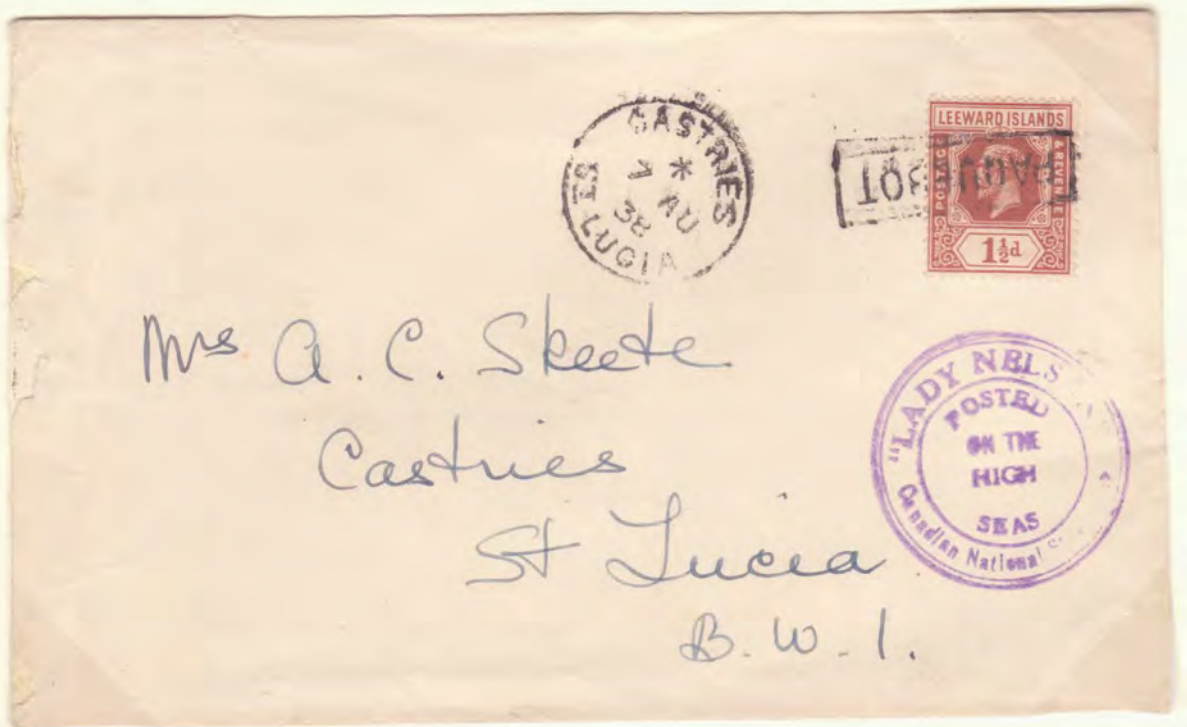 CASTRIES
*
7 AU
38
ST LUCIA
PAQUEBOT
LEEWARD ISLANDS
POSTAGE & REVENUE
1½d
Mrs A. C. Skeete
Castries
St Lucia
B. W. I.
"LADY NELS
POSTED
ON THE
HIGH
SEAS
Canadian National